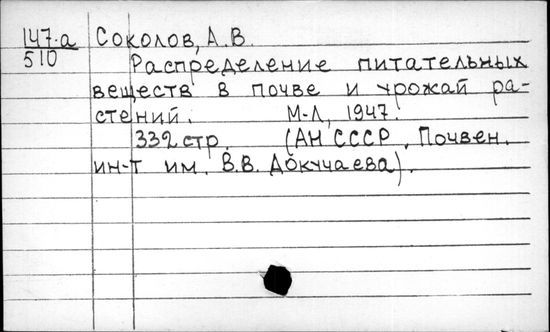 147-а Соколов, А.В.
510
Распределение питательных
веществ в почве и урожай ра-
стений. М-Л, 1947.
332 стр. (АН СССР, Почвен.
ин-т им. В.В. Докучаева).